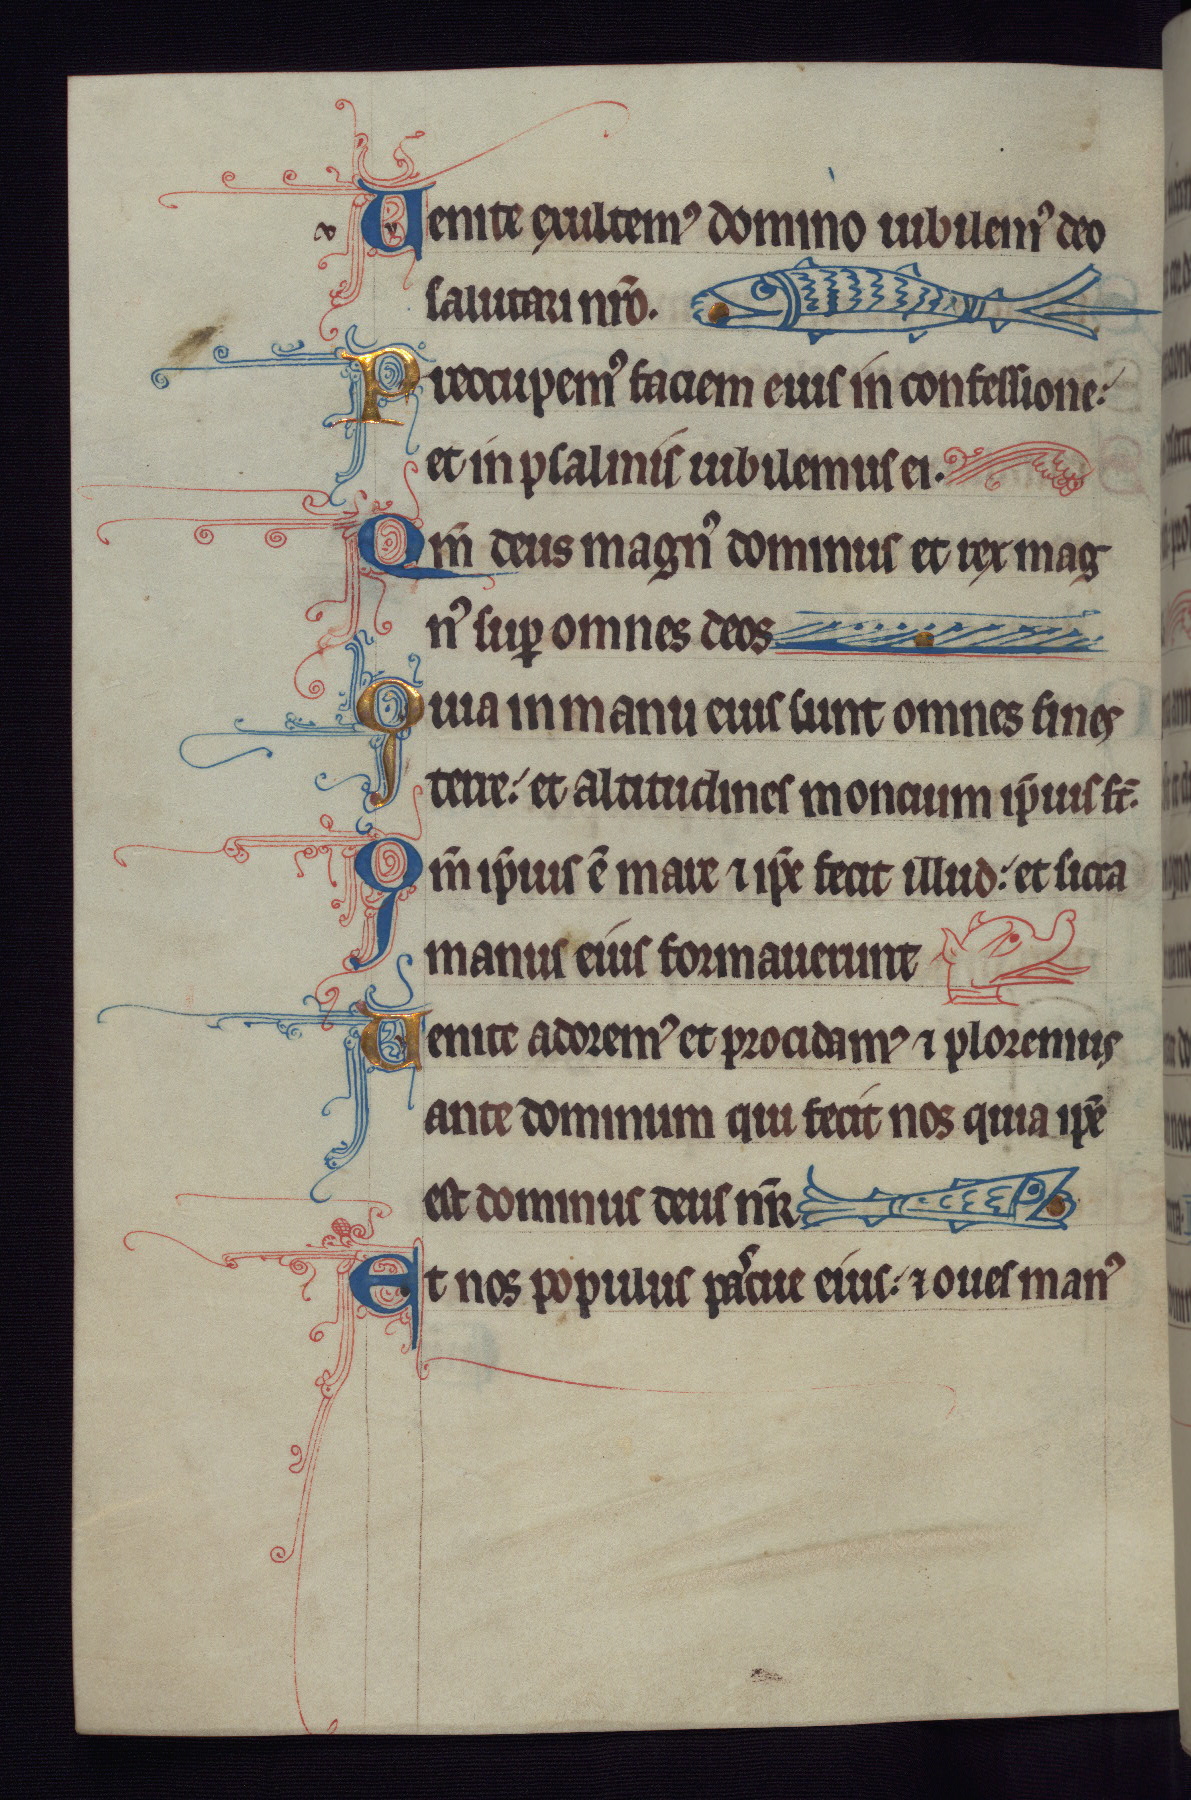 v Venite exultemꝰ domino iubilemꝰ deo
salutari nr̄o.
Preocupemꝰ faciem eius in confessione:
et in psalmis iubilemus ei.
Qm̄ deus magnꝰ dominus et rex mag
nꝰ suꝑ omnes deos
Quia in manu eius sunt omnes fines
terre: et altitudines moncium ip̄ius st̄.
Qm̄ ip̄ius ē mare ⁊ ip̄e fecit illud: et sicca
manus eius formauerunt
Uenite adoremꝰ et procidamꝰ ⁊ ploremus
ante dominum qui fecit nos quia ip̄e
est dominus deus nr̄
Et nos populus pascue eius: ⁊ oues manꝰ